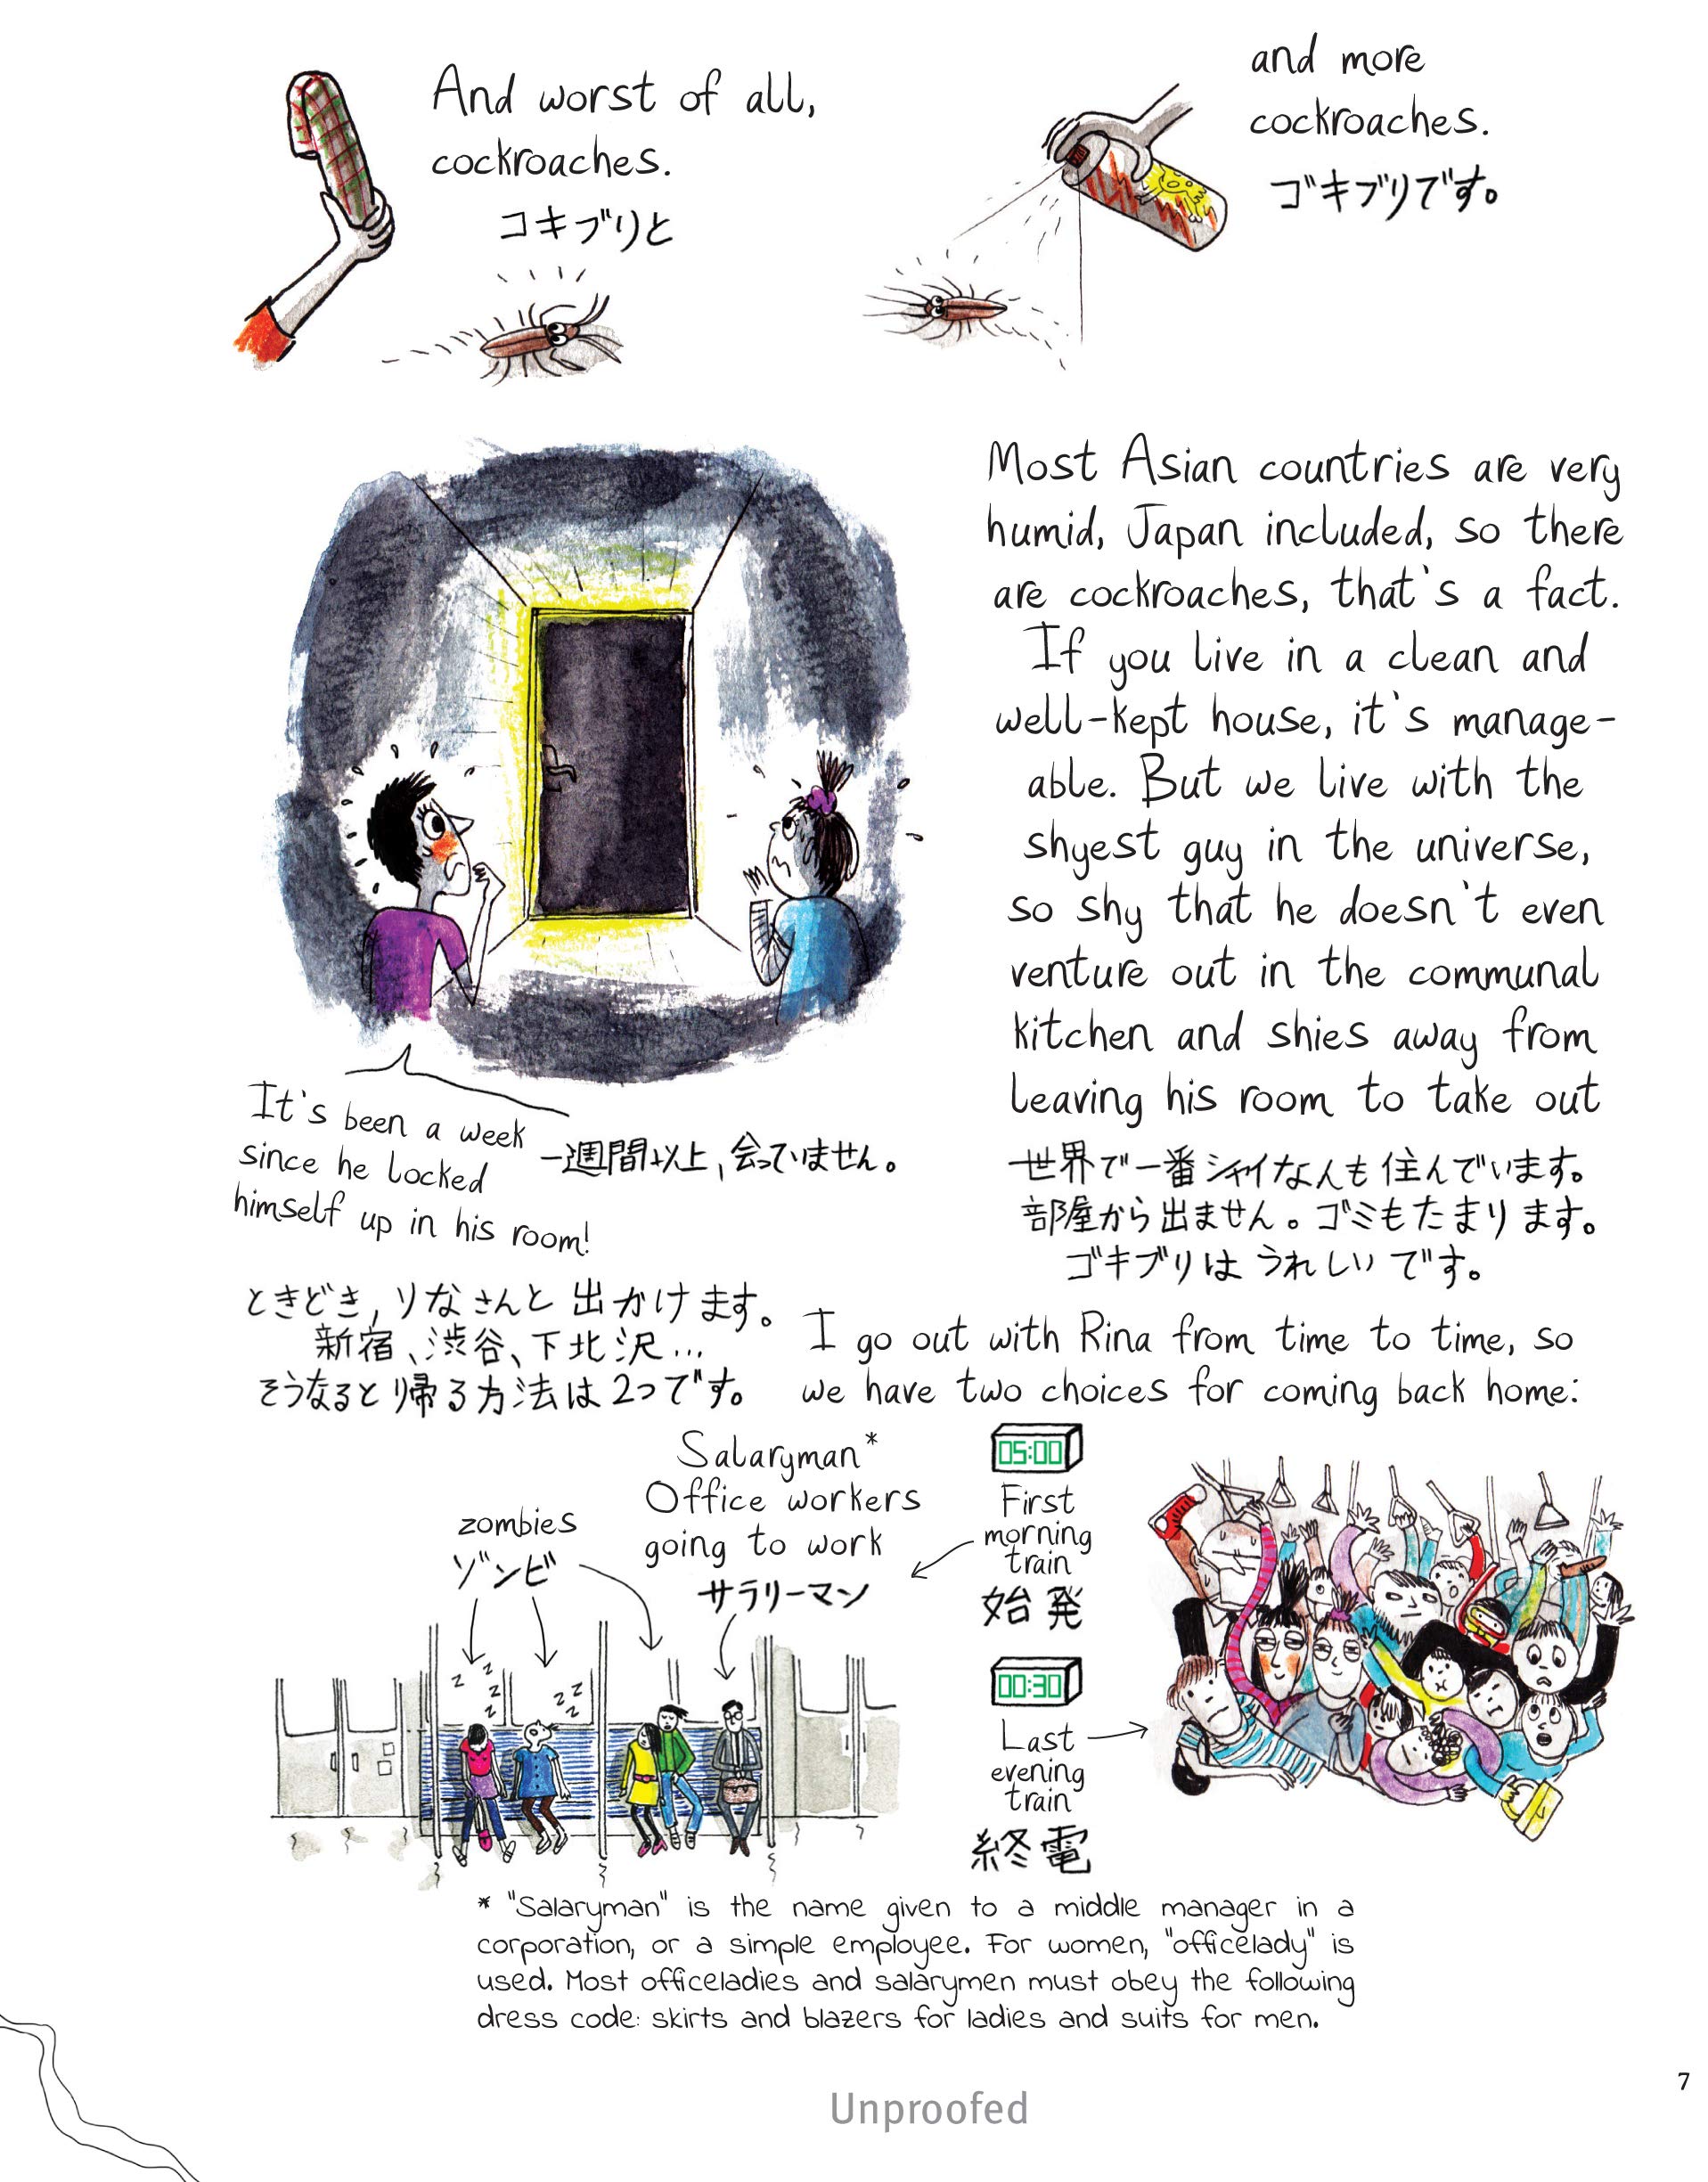 And worst of all,
cockroaches.
コキブリと
and more
cockroaches.
ゴキブリです。
Most Asian countries are very
humid, Japan included, so there
are cockroaches, that's a fact.
If you live in a clean and
well-kept house, it's manage-
able. But we live with the
shyest guy in the universe,
so shy that he doesn't even
venture out in the communal
kitchen and shies away from
leaving his room to take out
It's been a week
since he locked
himself up in his room!
一週間以上,会っていません。
世界で一番シャイな人も住んでいます。
部屋から出ません。ゴミもたまります。
ゴキブリはうれしいです。
ときどき,りなさんと出かけます。
新宿、渋谷、下北沢...
そうなると帰る方法は2つです。
I go out with Rina from time to time, so
we have two choices for coming back home:
zombies
ゾンビ
Salaryman*
Office workers
going to work
サラリーマン
05:00
First
morning
train
始発
00:30
Last
evening
train
終電
z
z
z
z
z z
z
z
* "Salaryman" is the name given to a middle manager in a
corporation, or a simple employee. For women, "officelady" is
used. Most officeladies and salarymen must obey the following
dress code: skirts and blazers for ladies and suits for men.
7
Unproofed